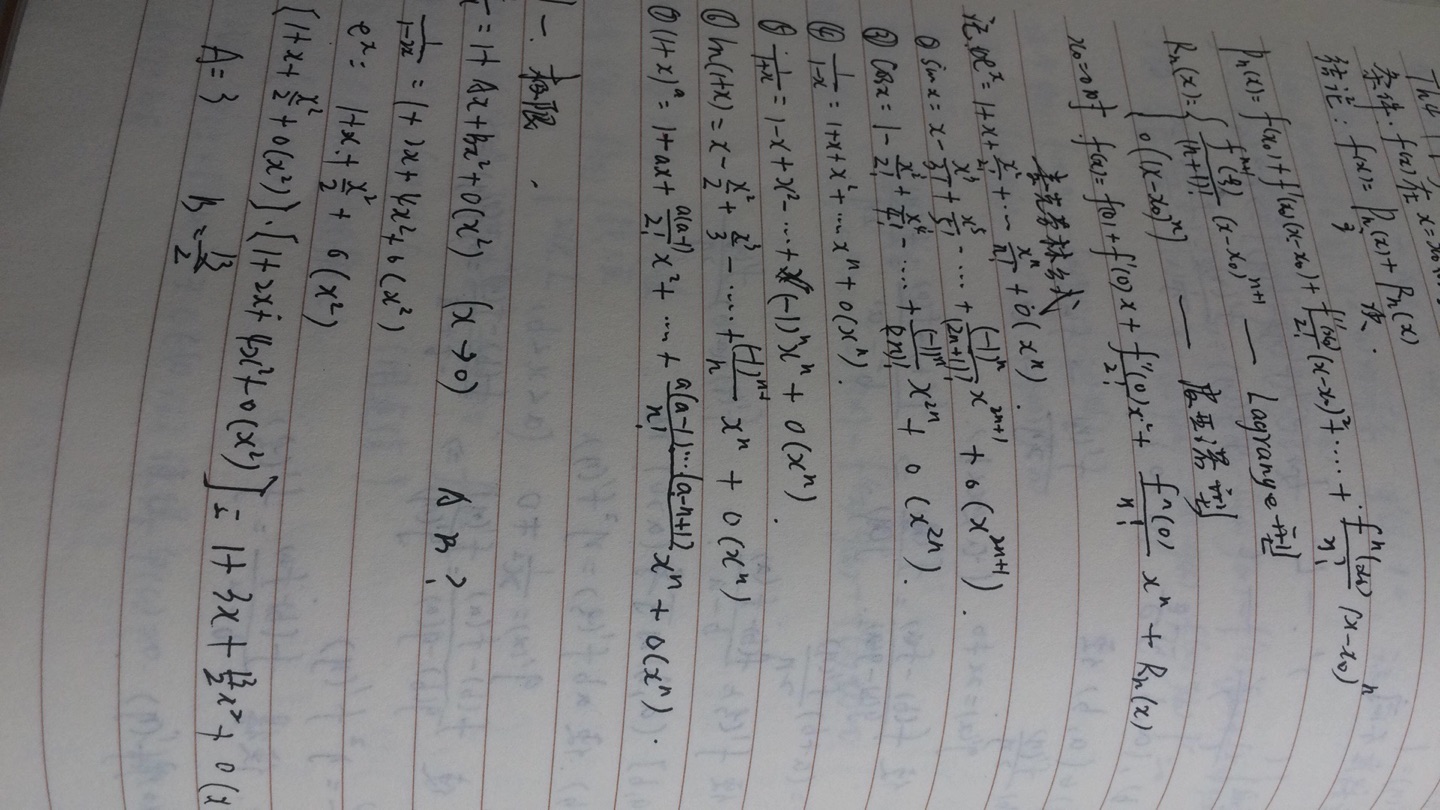 Th4
条件: f(x) 在 x=x₀
结论: f(x) = Pn(x) + Rn(x)
Pn(x) = f(x₀) + f'(x₀)(x-x₀) + f''(x₀)/2! (x-x₀)² + …… + fⁿ(x₀)/n! (x-x₀)ⁿ
Rn(x) = { fⁿ⁺¹(ξ)/(n+1)! (x-x₀)ⁿ⁺¹ — Lagrange 型
o((x-x₀)ⁿ) —
x₀=0时 f(x) = f(0) + f'(0)x + f''(0)/2! x² + fⁿ(0)/n! xⁿ + Rn(x)
麦克劳林公式
记 ① eˣ = 1+x+ x²/2! + … xⁿ/n! + o(xⁿ).
② sinx = x - x³/3! + x⁵/5! - …… + (-1)ⁿ/(2n+1)! x²ⁿ⁺¹ + o(x²ⁿ⁺¹).
③ cosx = 1 - x²/2! + x⁴/4! - …… + (-1)ⁿ/(2n)! x²ⁿ + o(x²ⁿ).
④ 1/(1-x) = 1+x+x²+ … xⁿ + o(xⁿ).
⑤ 1/(1+x) = 1-x+x²- … + (-1)ⁿxⁿ + o(xⁿ).
⑥ ln(1+x) = x - x²/2 + x³/3 - …… + (-1)ⁿ⁺¹/n xⁿ + o(xⁿ)
⑦ (1+x)ᵃ = 1+ax+ a(a-1)/2! x² + …… + a(a-1)…(a-n+1)/n! xⁿ + o(xⁿ).
一. 极限
= 1+Ax+Bx²+o(x²) (x→0) A B?
1/(1-2x) = 1+2x+4x²+o(x²)
eˣ = 1+x+ x²/2 + o(x²)
[1+x+ x²/2 + o(x²)]·[1+2x+4x²+o(x²)] = 1+3x+ 13/2 x² + o(x
A=3 B=13/2